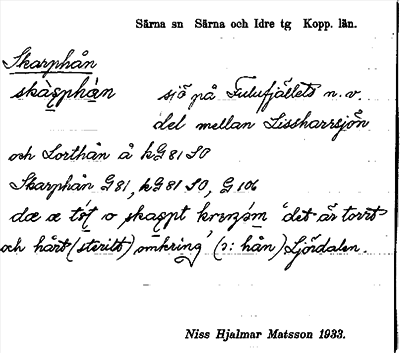 Särna sn Särna och Idre tg Kopp. län.
Skarphån
skàs̥phạ̀n sjö på Fulufjällets n.v.
del mellan Lissharrsjön
och Lorthån å kG 81 SO
Skarphån G 81, kG 81 SO, G 106
dæ æ tó̤t o skas̥pt krɩŋɔ́m "det är torrt
och hårt (sterilt) omkring" (ɔ: hån) Ljördalen.
Niss Hjalmar Matsson 1933.